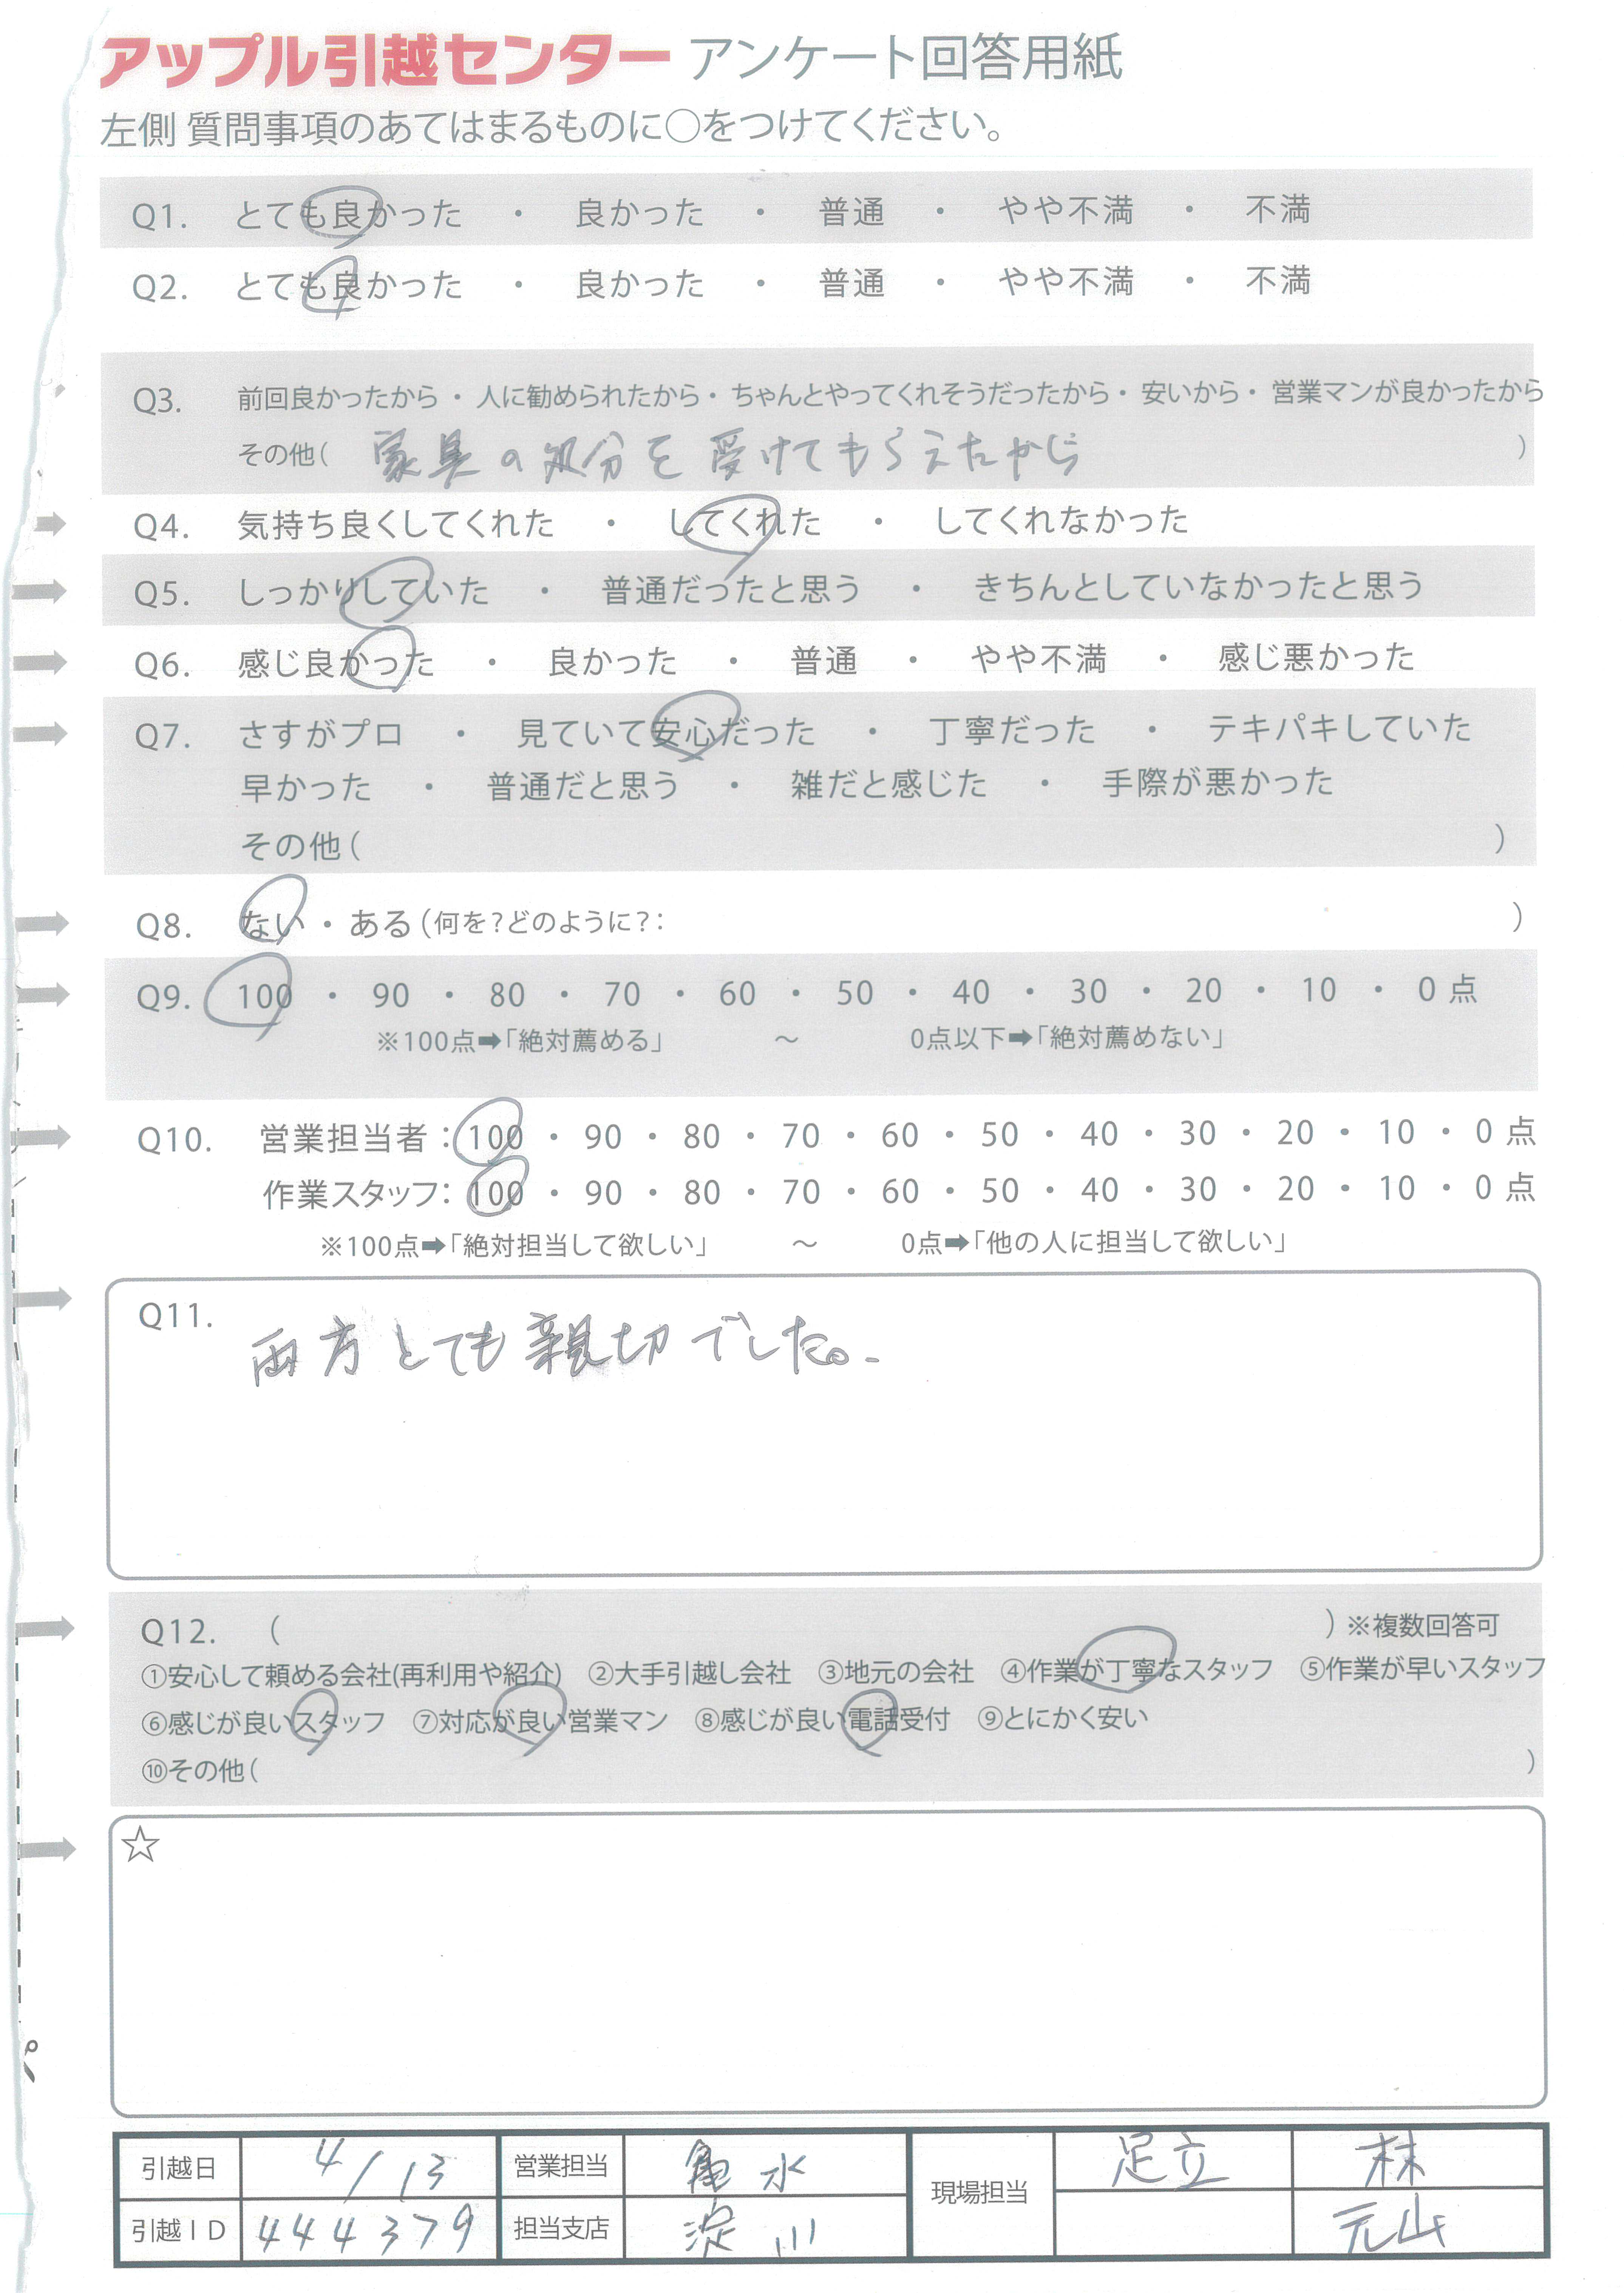 アップル引越センター アンケート回答用紙
左側 質問事項のあてはまるものに○をつけてください。
Q1. とても良かった ・ 良かった ・ 普通 ・ やや不満 ・ 不満
Q2. とても良かった ・ 良かった ・ 普通 ・ やや不満 ・ 不満
Q3. 前回良かったから ・ 人に勧められたから ・ ちゃんとやってくれそうだったから ・ 安いから ・ 営業マンが良かったから
その他( 家具の処分を受けてもらえたから )
Q4. 気持ち良くしてくれた ・ してくれた ・ してくれなかった
Q5. しっかりしていた ・ 普通だったと思う ・ きちんとしていなかったと思う
Q6. 感じ良かった ・ 良かった ・ 普通 ・ やや不満 ・ 感じ悪かった
Q7. さすがプロ ・ 見ていて安心だった ・ 丁寧だった ・ テキパキしていた
早かった ・ 普通だと思う ・ 雑だと感じた ・ 手際が悪かった
その他( )
Q8. ない ・ ある (何を?どのように?: )
Q9. 100 ・ 90 ・ 80 ・ 70 ・ 60 ・ 50 ・ 40 ・ 30 ・ 20 ・ 10 ・ 0 点
※100点➡「絶対薦める」 ～ 0点以下➡「絶対薦めない」
Q10. 営業担当者： 100 ・ 90 ・ 80 ・ 70 ・ 60 ・ 50 ・ 40 ・ 30 ・ 20 ・ 10 ・ 0 点
作業スタッフ： 100 ・ 90 ・ 80 ・ 70 ・ 60 ・ 50 ・ 40 ・ 30 ・ 20 ・ 10 ・ 0 点
※100点➡「絶対担当して欲しい」 ～ 0点➡「他の人に担当して欲しい」
Q11. 両方とても親切でした。
Q12. ( ) ※複数回答可
①安心して頼める会社(再利用や紹介) ②大手引越し会社 ③地元の会社 ④作業が丁寧なスタッフ ⑤作業が早いスタッフ
⑥感じが良いスタッフ ⑦対応が良い営業マン ⑧感じが良い電話受付 ⑨とにかく安い
⑩その他( )
☆
引越日 4/13 営業担当 亀水 現場担当 足立 林
引越ID 444379 担当支店 淀川 元山